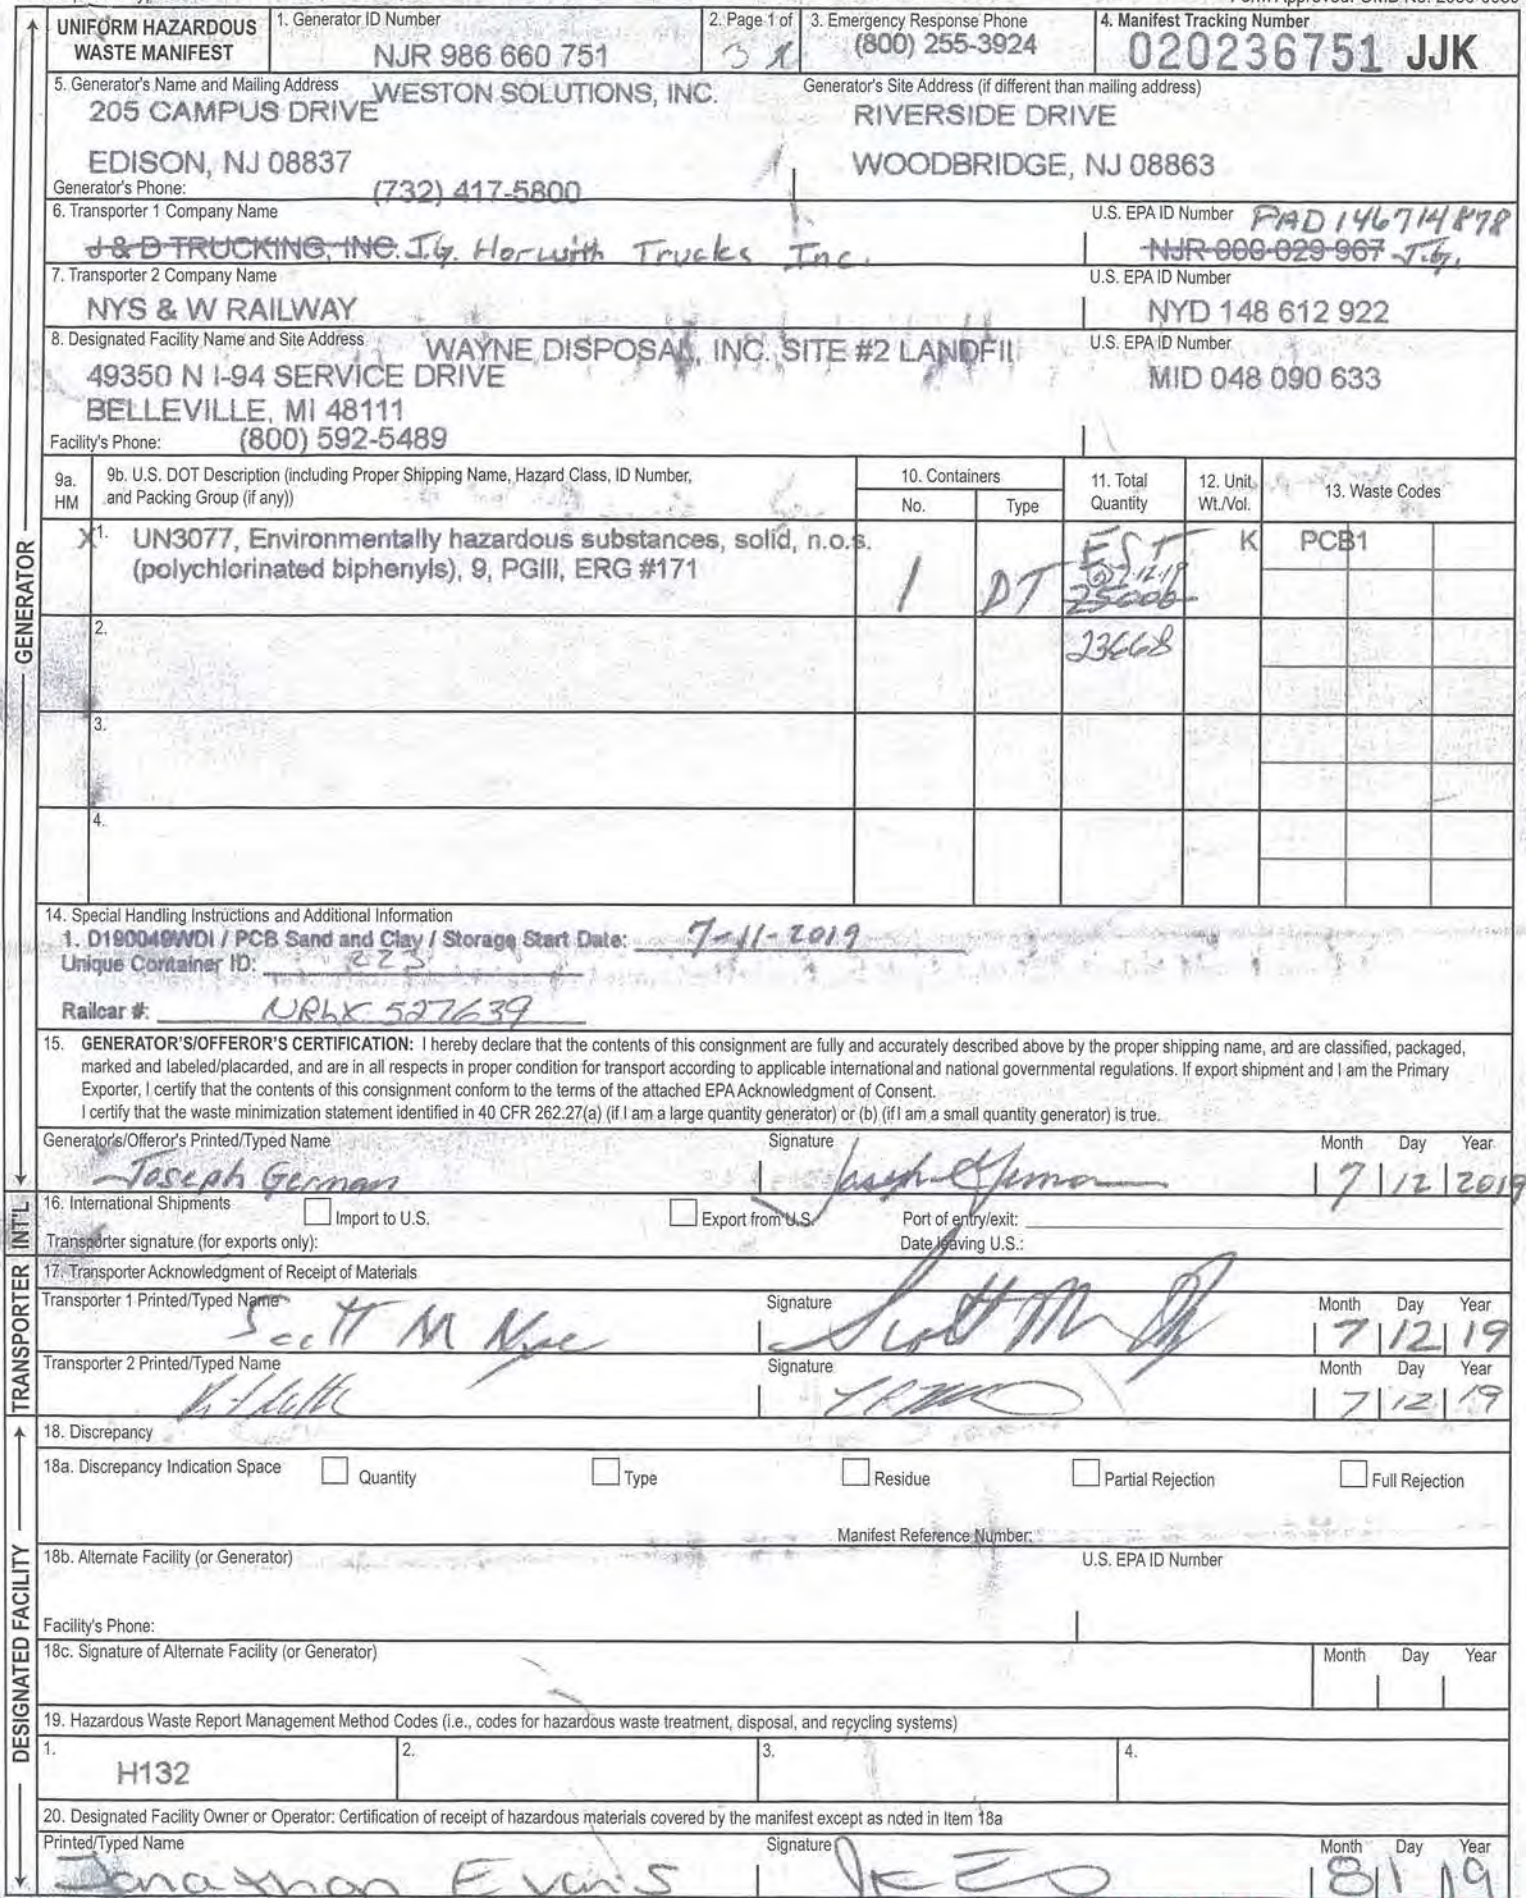 UNIFORM HAZARDOUS WASTE MANIFEST
1. Generator ID Number
NJR 986 660 751
2. Page 1 of
3
3. Emergency Response Phone
(800) 255-3924
4. Manifest Tracking Number
020236751 JJK
5. Generator's Name and Mailing Address
WESTON SOLUTIONS, INC.
205 CAMPUS DRIVE
EDISON, NJ 08837
Generator's Phone: (732) 417-5800
Generator's Site Address (if different than mailing address)
RIVERSIDE DRIVE
WOODBRIDGE, NJ 08863
6. Transporter 1 Company Name
J & D TRUCKING, INC. J.G. Horwith Trucks Inc.
U.S. EPA ID Number PAD 146714878
NJR 000 029 967 J.G.
7. Transporter 2 Company Name
NYS & W RAILWAY
U.S. EPA ID Number
NYD 148 612 922
8. Designated Facility Name and Site Address
WAYNE DISPOSAL, INC. SITE #2 LANDFIL
49350 N I-94 SERVICE DRIVE
BELLEVILLE, MI 48111
Facility's Phone: (800) 592-5489
U.S. EPA ID Number
MID 048 090 633
9a. HM
9b. U.S. DOT Description (including Proper Shipping Name, Hazard Class, ID Number, and Packing Group (if any))
10. Containers
No.
Type
11. Total Quantity
12. Unit Wt./Vol.
13. Waste Codes
X 1. UN3077, Environmentally hazardous substances, solid, n.o.s.
(polychlorinated biphenyls), 9, PGIII, ERG #171
1
DT
EST
7.12.19
25000
K
PCB1
2.
23668
3.
4.
14. Special Handling Instructions and Additional Information
1. D190049WDI / PCB Sand and Clay / Storage Start Date: 7-11-2019
Unique Container ID: 223
Railcar #: NRLX 527639
15. GENERATOR'S/OFFEROR'S CERTIFICATION: I hereby declare that the contents of this consignment are fully and accurately described above by the proper shipping name, and are classified, packaged,
marked and labeled/placarded, and are in all respects in proper condition for transport according to applicable international and national governmental regulations. If export shipment and I am the Primary
Exporter, I certify that the contents of this consignment conform to the terms of the attached EPA Acknowledgment of Consent.
I certify that the waste minimization statement identified in 40 CFR 262.27(a) (if I am a large quantity generator) or (b) (if I am a small quantity generator) is true.
Generator's/Offeror's Printed/Typed Name
Joseph German
Signature
Month Day Year
7 12 2019
16. International Shipments
Import to U.S.
Export from U.S.
Port of entry/exit:
Transporter signature (for exports only):
Date leaving U.S.:
17. Transporter Acknowledgment of Receipt of Materials
Transporter 1 Printed/Typed Name
Scott M Nye
Signature
Month Day Year
7 12 19
Transporter 2 Printed/Typed Name
Signature
Month Day Year
7 12 19
18. Discrepancy
18a. Discrepancy Indication Space
Quantity
Type
Residue
Partial Rejection
Full Rejection
Manifest Reference Number:
18b. Alternate Facility (or Generator)
U.S. EPA ID Number
Facility's Phone:
18c. Signature of Alternate Facility (or Generator)
Month Day Year
19. Hazardous Waste Report Management Method Codes (i.e., codes for hazardous waste treatment, disposal, and recycling systems)
1. H132
2.
3.
4.
20. Designated Facility Owner or Operator: Certification of receipt of hazardous materials covered by the manifest except as noted in Item 18a
Printed/Typed Name
Jonathon Evans
Signature
Month Day Year
8 1 19
GENERATOR
INT'L
TRANSPORTER
DESIGNATED FACILITY